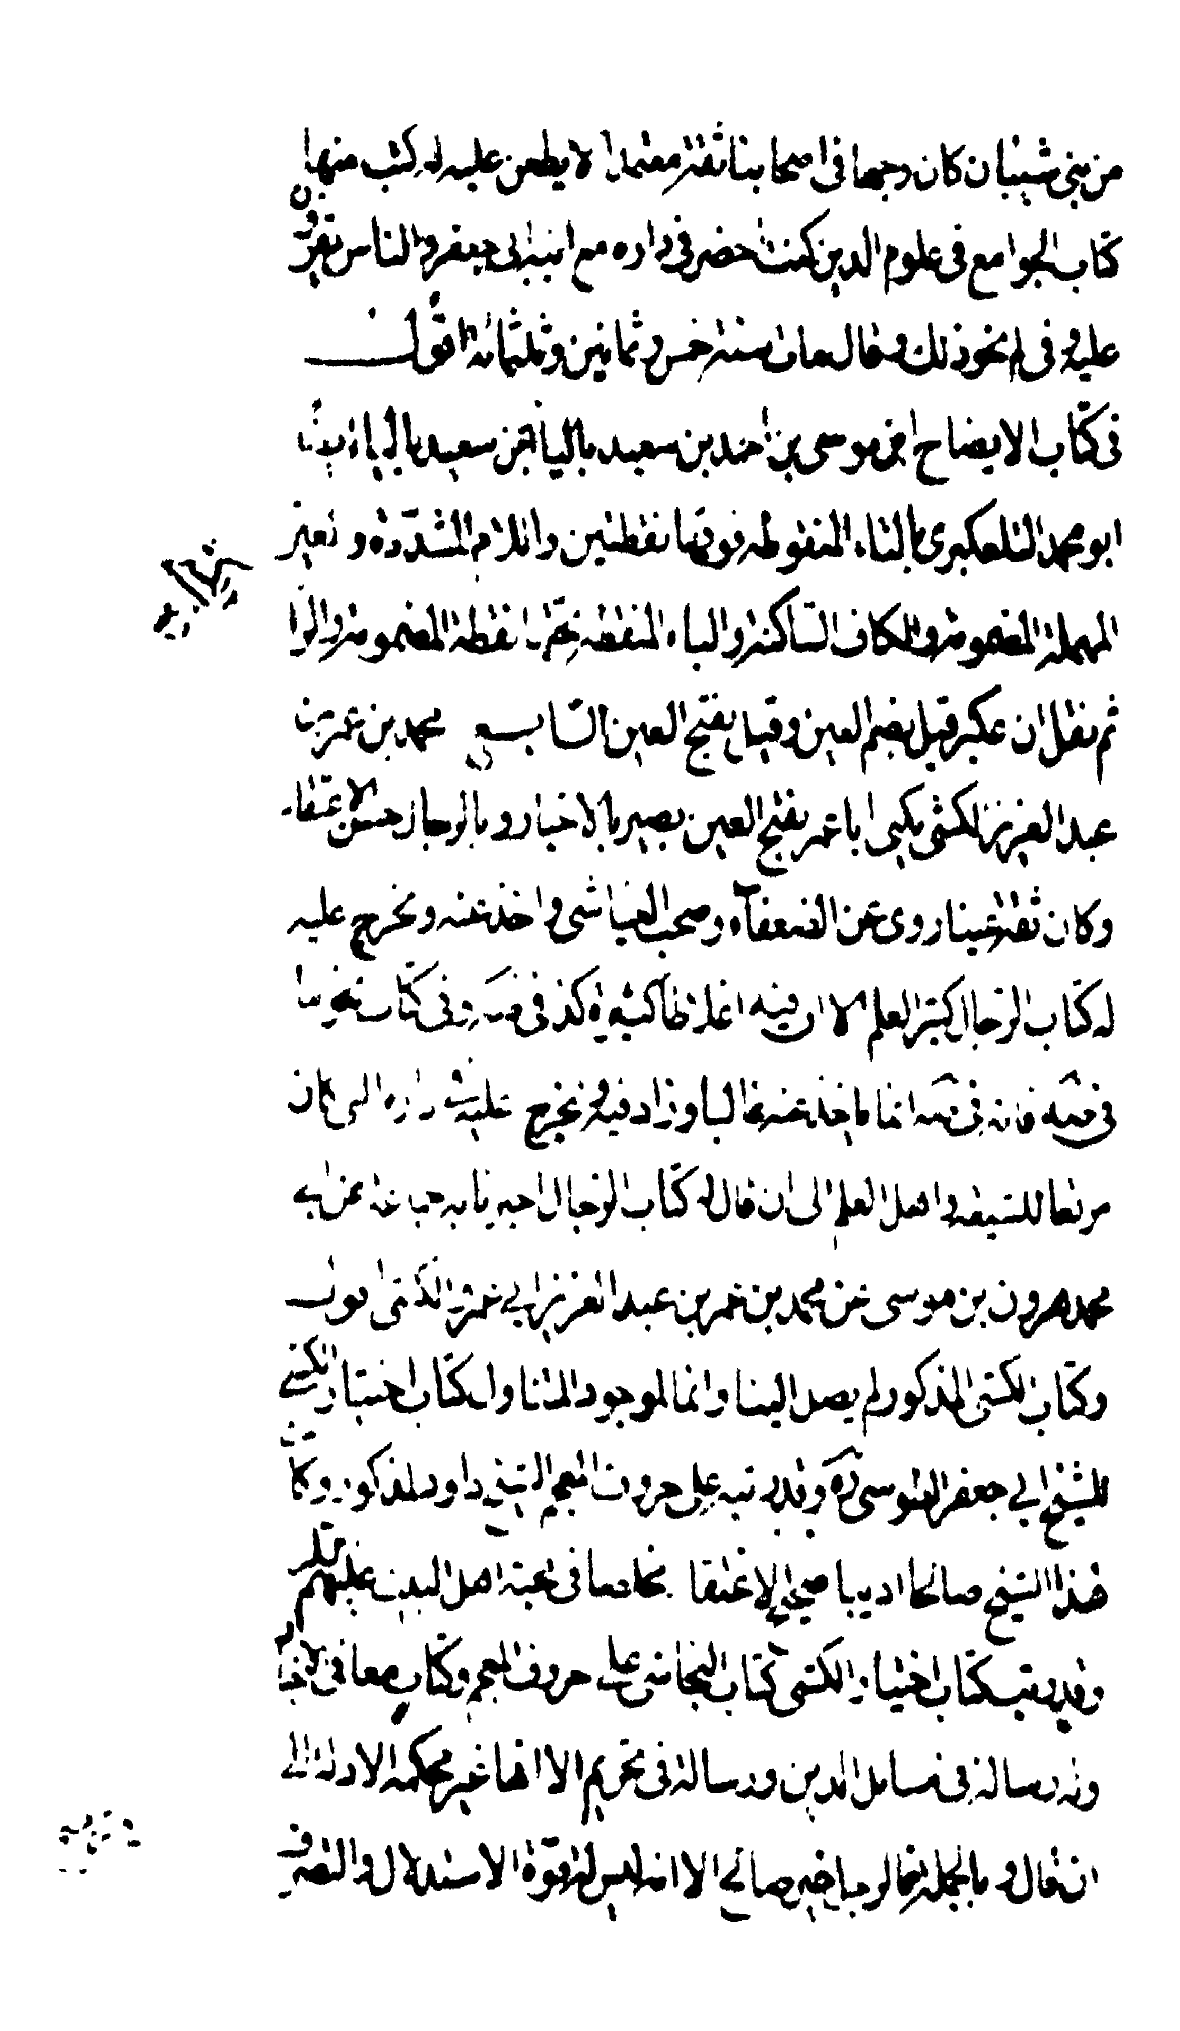 من بني شيبان كان وجها في اصحابنا ثقة معتمدا لا يطعن عليه له كتب منها
كتاب الجوامع في علوم الدين كنت احضر في داره مع ابنه ابي جعفر والناس يقرؤن
عليه وفي لم نحو ذلك وقال مات سنة خمس وثمانين وثلثمائة اقول
في كتاب الايضاح ابن موسى بن احمد بن سعيد بالياء بن سعيد بالياء
ابو محمد التلعكبري بالتاء المنقوطة فوقها نقطتين واللام المشددة و
المهملة المضمومة والكاف الساكنة والباء المنقطة تحتها نقطة المضمومة والراء
ثم نقل ان عكبر قيل بضم العين وقيل بفتح العين السابع محمد بن عمر بن
عبد العزيز الكشي يكنى ابا عمر بفتح العين بصير بالاخبار وبالرجال حسن الاعتقاد
وكان ثقة عينا روى عن الضعفاء وصحب العياشي واخذ عنه وتخرج عليه
له كتاب الرجال كثير العلم الا ان فيه اغلاطا كثيرة كذا في وفي كتاب
في فانه في انما اخذ عنه غالبا وزاد فيه وتخرج عليه في داره التي كان
مرتعا للشيعة واهل العلم الى ان قال له كتاب الرجال اخبرنا به جماعة عن ابي
محمد هرون بن موسى عن محمد بن عمر بن عبد العزيز ابي عمرو الكشي اقول
وكتاب الكشي المذكور لم يصل الينا وانما الموجود المتناول كتاب اختيار الكشي
للشيخ ابي جعفر الطوسي ره وقد رتبه على حروف المعجم الشيخ داود المذكور وكان
هذا الشيخ صالحا اديبا صحيح الاعتقاد مخلصا في محبة اهل البيت عليهم السلام
وقد رتب كتاب اختيار الكشي كتاب النجاشي على حروف المعجم وكتاب معاني الاخبار
وله رسالة في مسائل الدين ورسالة في تحريم الا انها غير محكمة الادلة الى
ان قال وبالجملة فالرجل خير صالح الا انه ليس له قوة الاستدلال والتصرف